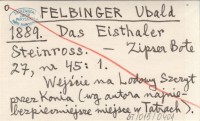 FELBINGER Ubald
1889. Das Eisthaler
Steinross. — Zipser Bote
27, na 45: 1.
Wejście na Lodowy Szczyt
przez Konia (wg autora najnie-
bezpieczniejsze miejsce w Tatrach).